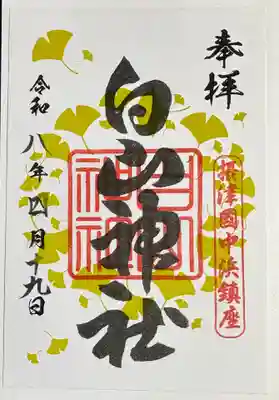 奉拝
摂津國中浜鎮座
白山神社
白山
神社
令和八年四月十九日